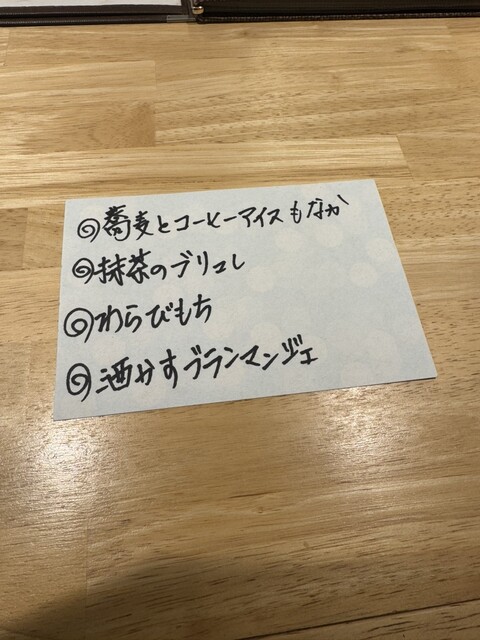 ◎蕎麦とコーヒーアイスもなか
◎抹茶のブリュレ
◎わらびもち
◎酒かすブランマンジェ